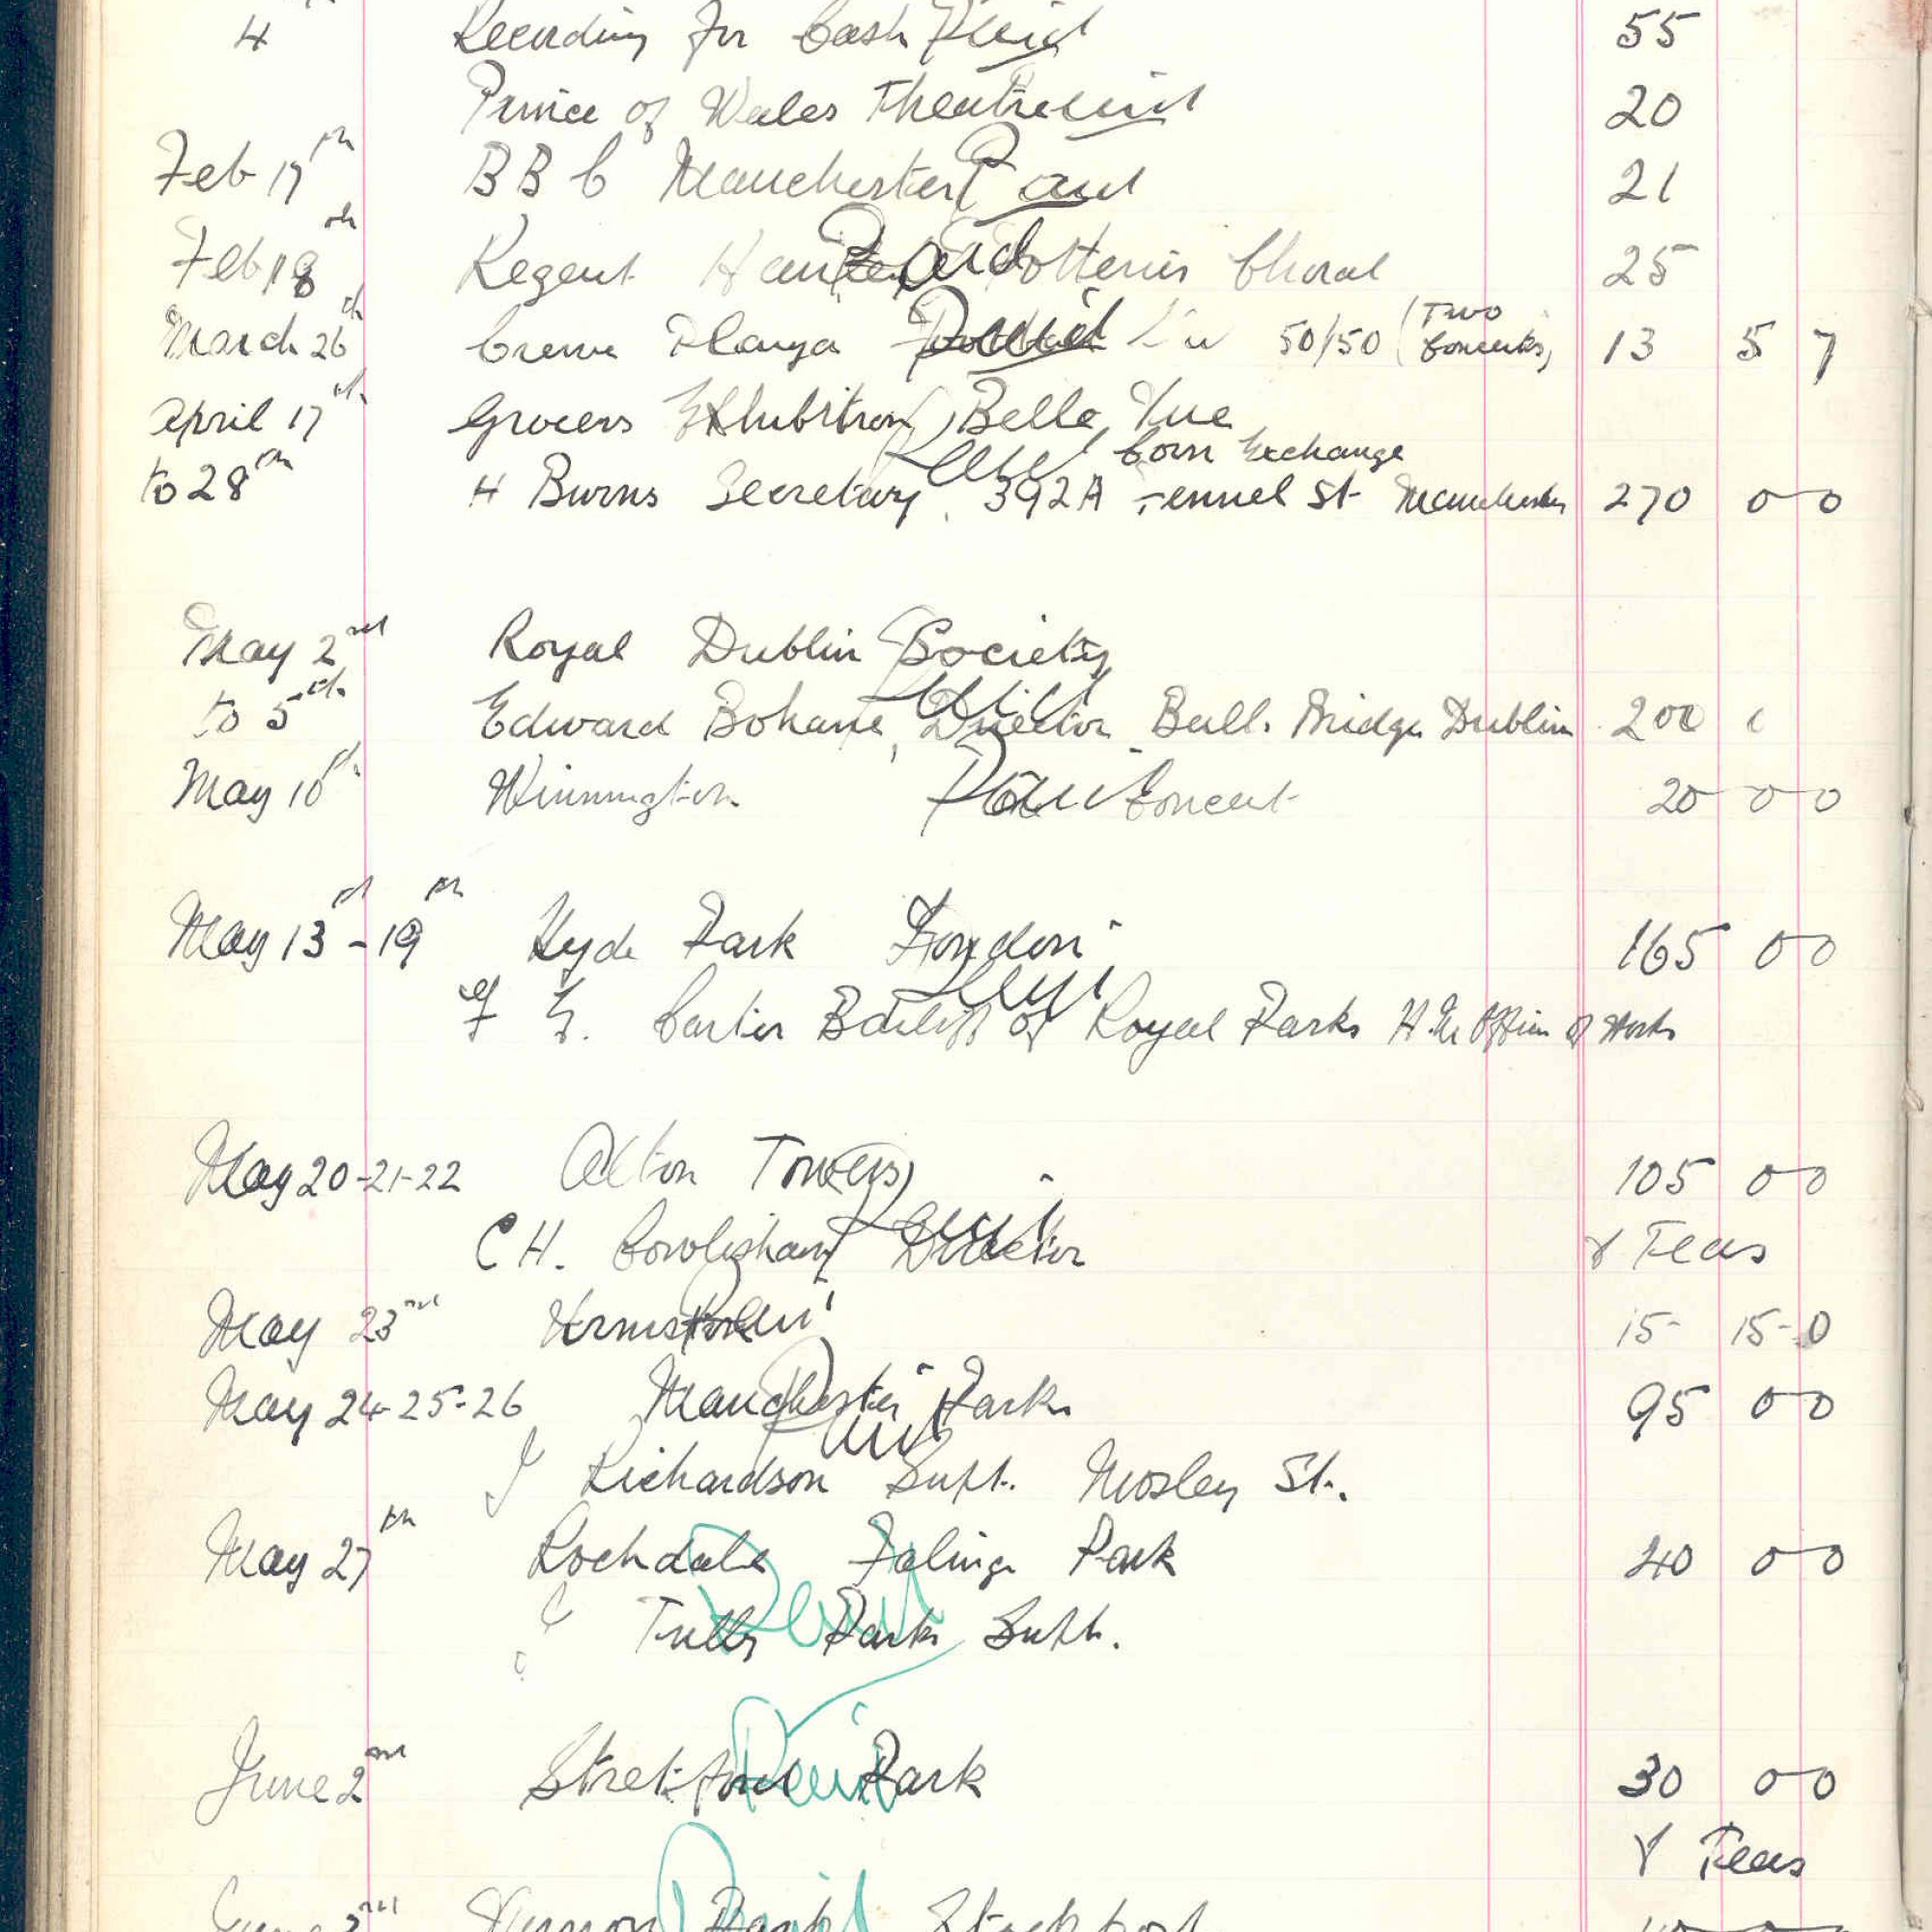 4 Recording for Cash Paid 55
Prince of Wales Theatre Paid 20
Feb 17th BBC Manchester Paid 21
Feb 18th Regent Hanley Paid Potteries Choral 25
March 26th Crewe Playa Paid 50/50 (Two Concerts) 13 5 7
April 17th Grocers Exhibition Belle Vue
Paid Corn Exchange
to 28th H Burns Secretary 392A Fennel St Manchester 270 0 0
May 2nd Royal Dublin Society
to 5th Edward Bohane, Paid Director Balls Bridge Dublin 200
May 10th Winnington Paid Concert 20 0 0
May 13th-19th Hyde Park London 165 0 0
Paid
Carter Bailiff of Royal Parks H.M Office of Works
May 20-21-22 Alton Towers 105 0 0
C H. Cowlishaw Paid Director & Teas
May 23rd Urmston Paid 15- 15-0
May 24-25-26 Manchester Parks 95 0 0
Paid
J Richardson Supt. Mosley St.
May 27th Rochdale Falinge Park 40 0 0
Paid
Parks Supt.
June 2nd Stretford Paid Park 30 0 0
& Teas
June 3rd Vernon Park Paid Stockport